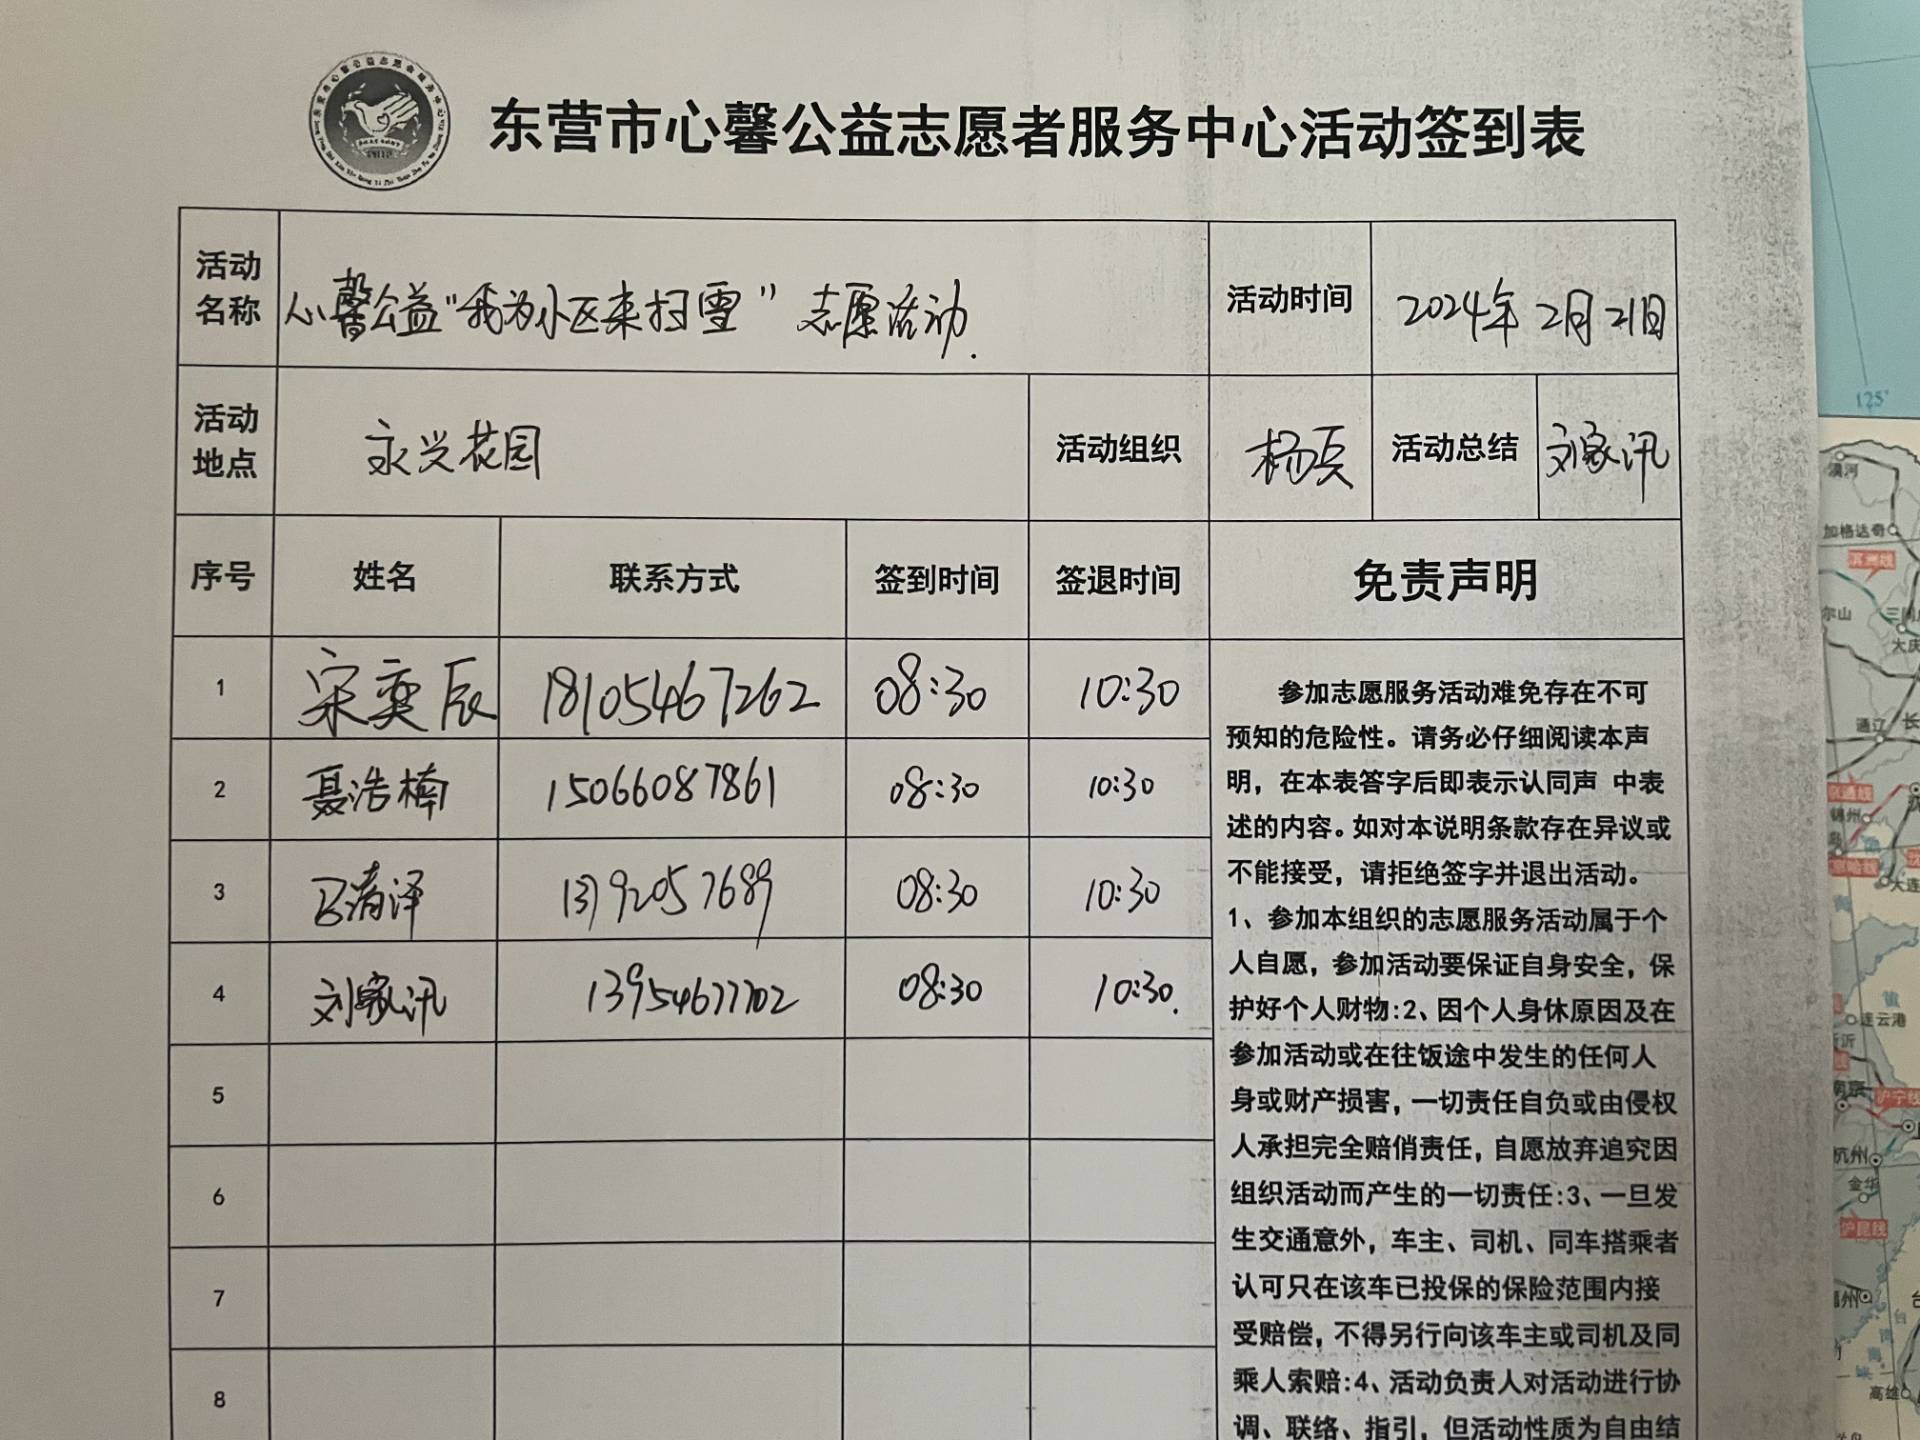 东营市心馨公益志愿者服务中心活动签到表
活动名称 心馨公益“我为小区来扫雪”志愿活动. 活动时间 2024年2月21日
活动地点 永兴花园 活动组织 杨兵 活动总结 刘家汛
序号 姓名 联系方式 签到时间 签退时间 免责声明
1 宋奕辰 18105467262 08:30 10:30
2 聂浩楠 15066087861 08:30 10:30
3 清泽 13792057689 08:30 10:30
4 刘家汛 13954677702 08:30 10:30.
5
6
7
8
参加志愿服务活动难免存在不可
预知的危险性。请务必仔细阅读本声
明，在本表答字后即表示认同声 中表
述的内容。如对本说明条款存在异议或
不能接受，请拒绝签字并退出活动。
1、参加本组织的志愿服务活动属于个
人自愿，参加活动要保证自身安全，保
护好个人财物:2、因个人身休原因及在
参加活动或在往饭途中发生的任何人
身或财产损害，一切责任自负或由侵权
人承担完全赔俏责任，自愿放弃追究因
组织活动而产生的一切责任:3、一旦发
生交通意外，车主、司机、同车搭乘者
认可只在该车已投保的保险范围内接
受赔偿，不得另行向该车主或司机及同
乘人索赔:4、活动负责人对活动进行协
调、联络、指引，但活动性质为自由结
125°
漠河
加格达奇
滨洲线
尔山
大庆
通辽
长
京通线
锦州
京哈线
大连
连云港
南京
沪宁线
杭州
金华
沪昆线
高雄